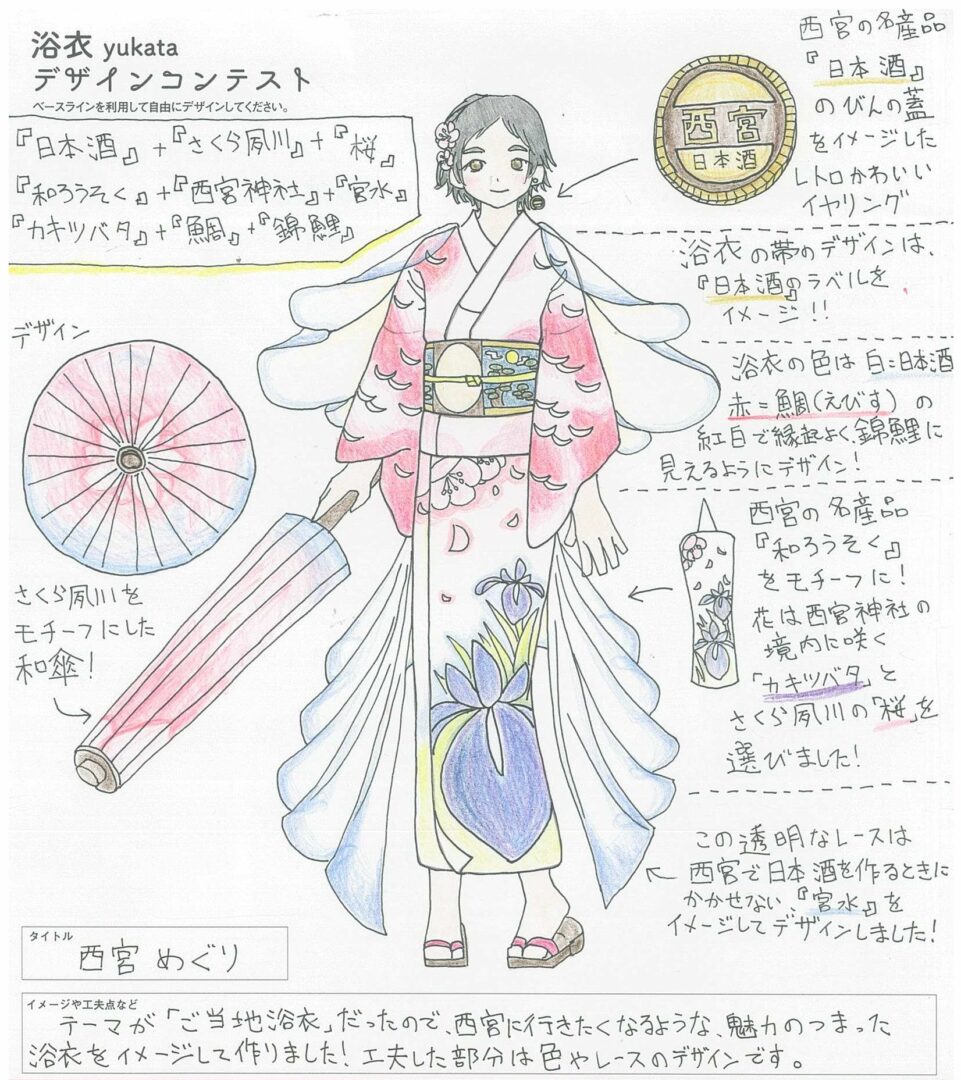 浴衣 yukata
デザインコンテスト
ベースラインを利用して自由にデザインしてください。
『日本酒』+『さくら夙川』+『桜』
『和ろうそく』+『西宮神社』+『宮水』
『カキツバタ』+『鯛』+『錦鯉』
西宮の名産品
『日本酒』
のびんの蓋
をイメージした
レトロかわいい
イヤリング
西宮
日本酒
浴衣の帯のデザインは、
『日本酒のラベルを』
イメージ!!
浴衣の色は白=日本酒
赤=鯛(えびす)の
紅白で縁起よく、錦鯉に
見えるようにデザイン!
デザイン
さくら夙川を
モチーフにした
和傘!
西宮の名産品
『和ろうそく』
をモチーフに!
花は西宮神社の
境内に咲く
「カキツバタ」と
さくら夙川の「桜」を
選びました!
この透明なレースは
西宮で日本酒を作るときに
かかせない、『宮水』を
イメージしてデザインしました!
タイトル
西宮めぐり
イメージや工夫点など
テーマが「ご当地浴衣」だったので、西宮に行きたくなるような、魅力のつまった
浴衣をイメージして作りました!工夫した部分は色やレースのデザインです。